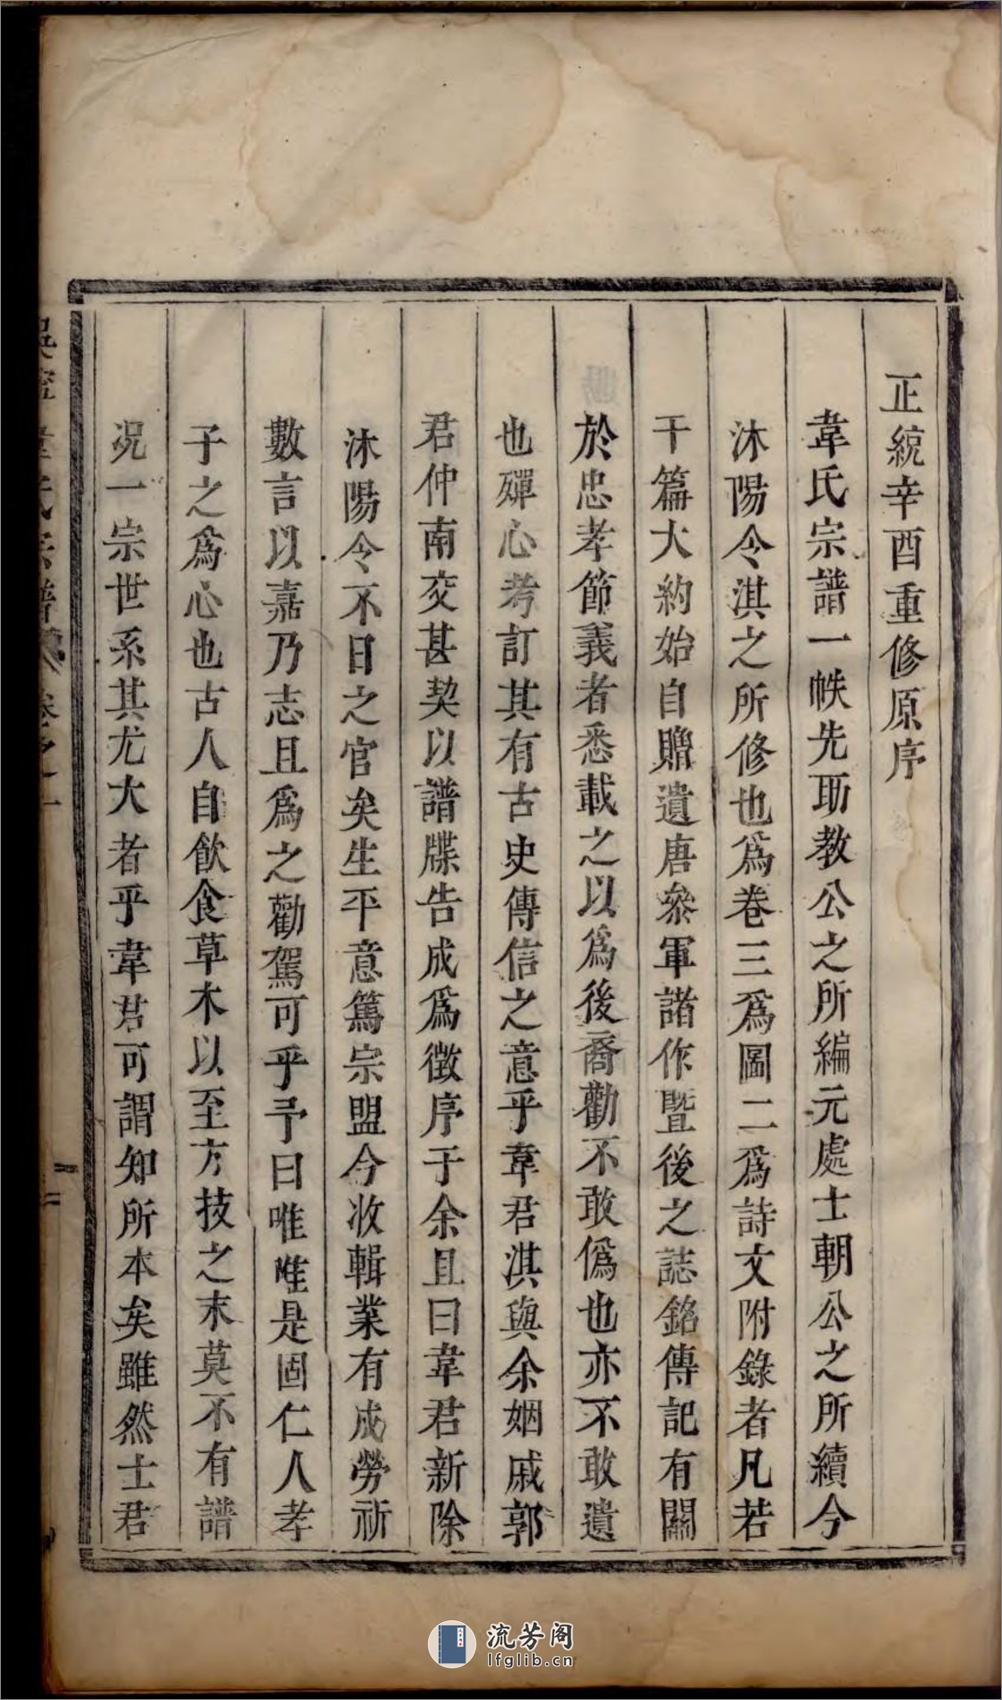 正統辛酉重修原序
韋氏宗譜一帙先助教公之所編元處士朝公之所續今
沐陽令淇之所修也為卷三為圖二為詩文附錄者凡若
干篇大約始自贈遺唐叅軍諸作暨後之誌銘傳記有關
於忠孝節義者悉載之以為後裔勸不敢偽也亦不敢遺
也殫心考訂其有古史傳信之意乎韋君淇與余姻戚郭
君仲南交甚契以譜牒告成為徵序于余且曰韋君新除
沐陽令不日之官矣生平意篤宗盟今收輯業有成勞祈
數言以嘉乃志且為之勸駕可乎予曰唯唯是固仁人孝
子之為心也古人自飲食草木以至方技之末莫不有譜
况一宗世系其尤大者乎韋君可謂知所本矣雖然士君
韋氏宗譜 卷之一
流芳阁
lfglib.cn